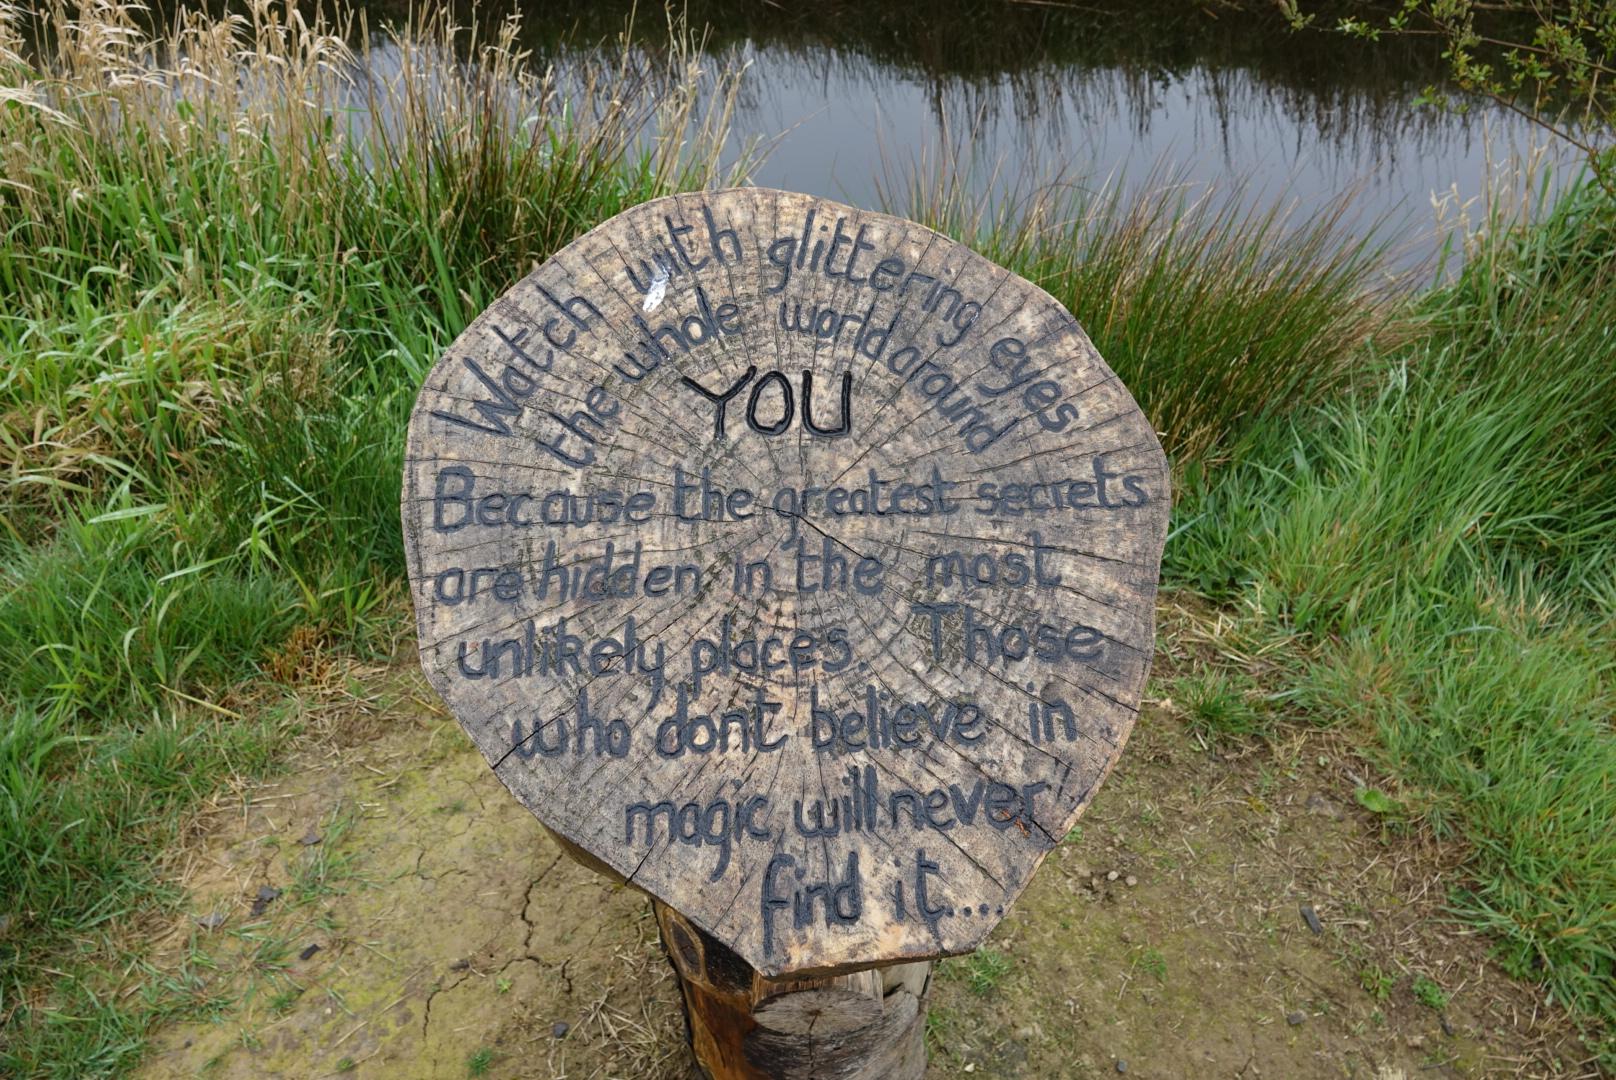 Watch with glittering eyes
the whole world around
YOU
Because the greatest secrets
are hidden in the most
unlikely places. Those
who dont believe in
magic will never
find it....